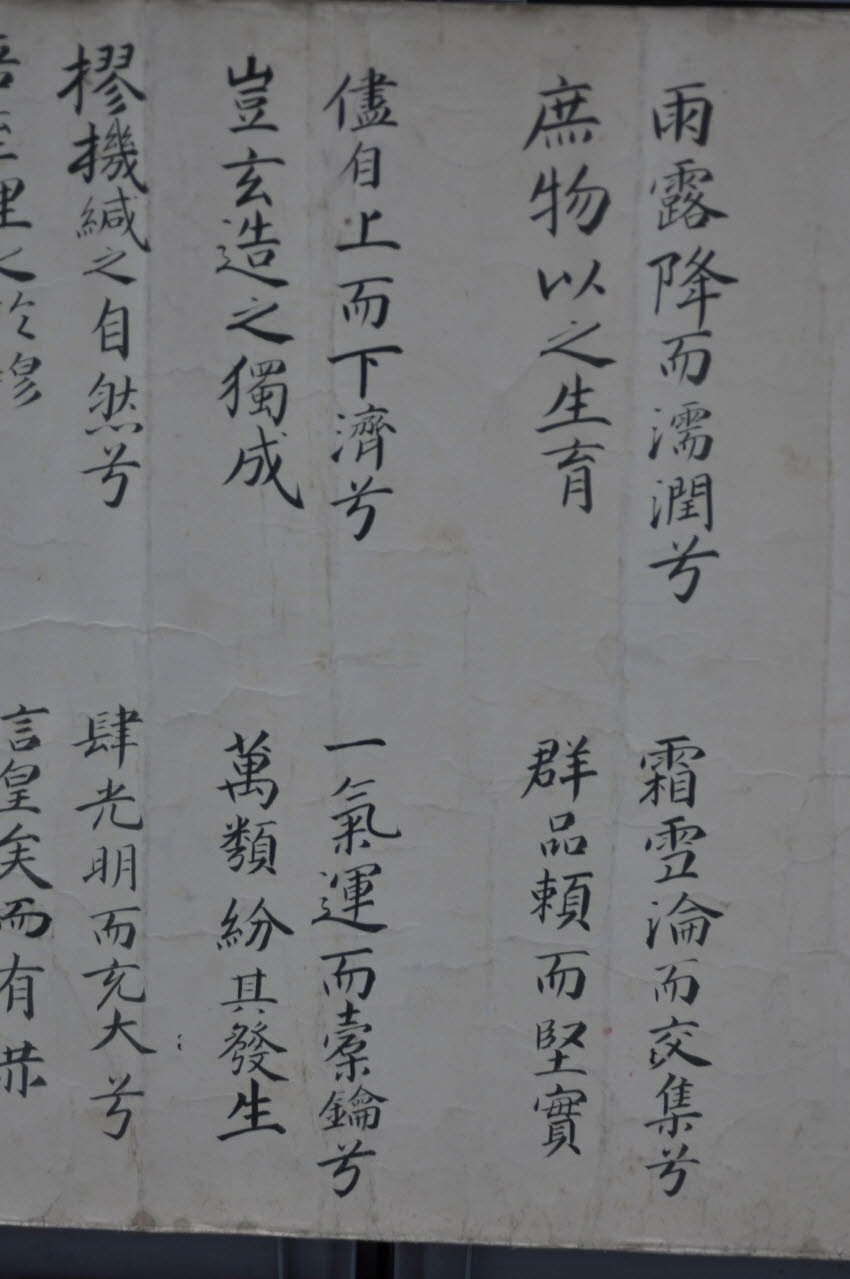 雨露降而濡潤兮
庶物以之生育
霜雪淪而交集兮
群品賴而堅實
儘自上而下濟兮
豈玄造之獨成
一氣運而橐鑰兮
萬類紛其發生
樛機緘之自然兮
理之
肆光明而充大兮
皇矣而有